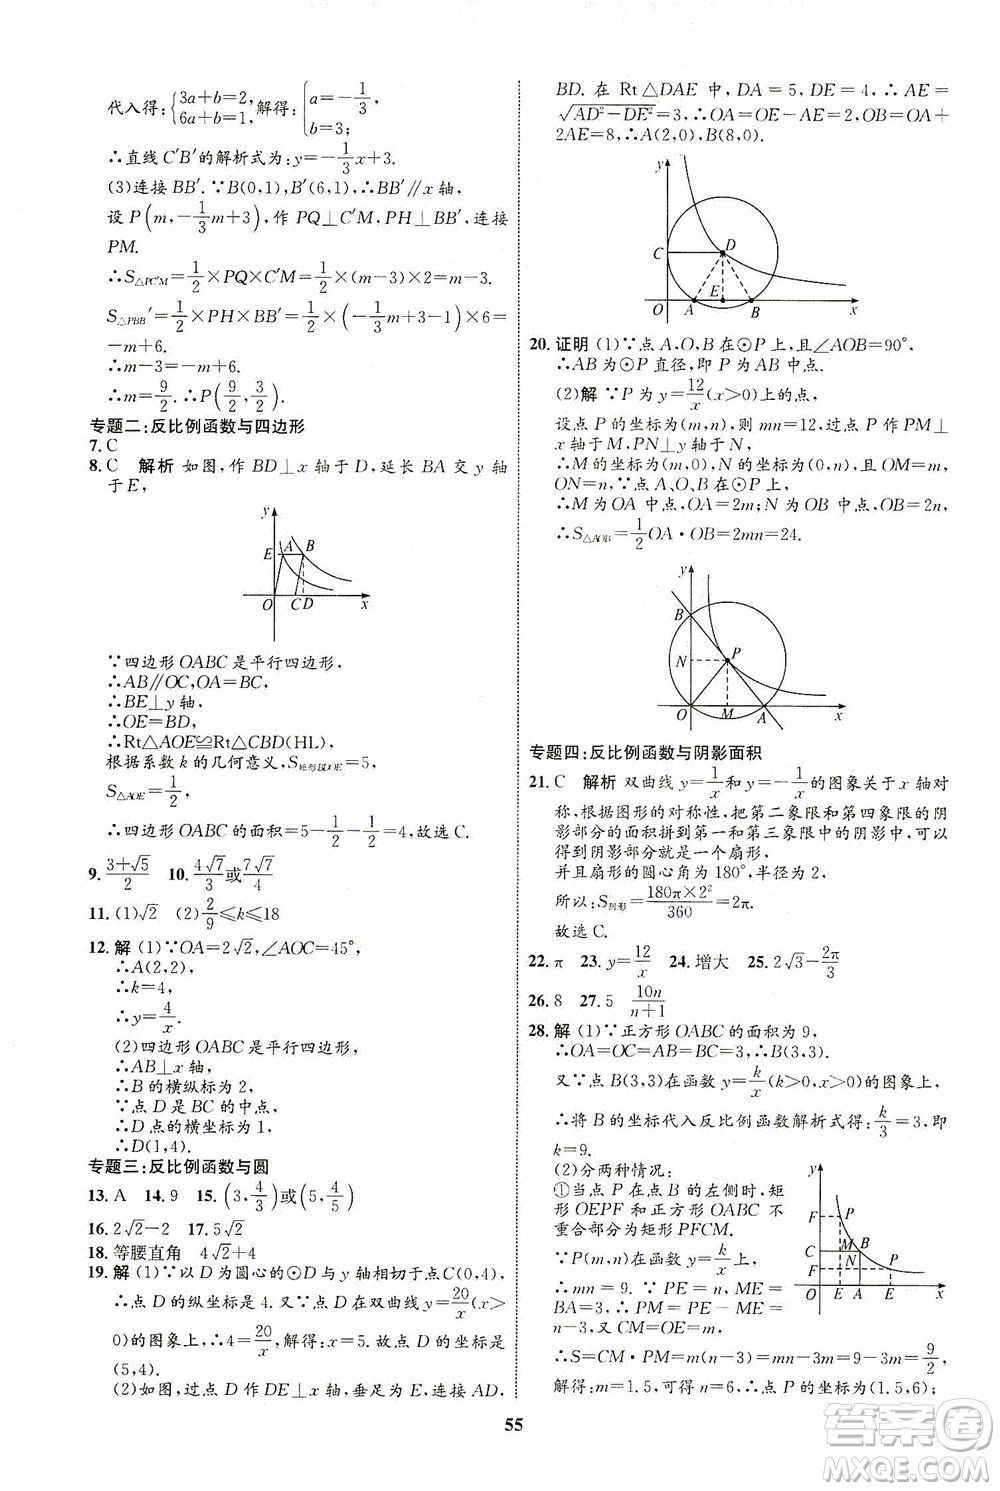 代入得:{3a+b=2, 6a+b=1, 解得:{a=-1/3, b=3;
∴直线 C′B′的解析式为:y=-1/3x+3.
(3)连接 BB′. ∵B(0,1),B′(6,1),∴BB′∥x 轴,
设 P(m,-1/3m+3),作 PQ⊥C′M,PH⊥BB′,连接
PM.
∴S△PC′M=1/2×PQ×C′M=1/2×(m-3)×2=m-3.
S△PBB′=1/2×PH×BB′=1/2×(-1/3m+3-1)×6=
-m+6.
∴m-3=-m+6.
∴m=9/2. ∴P(9/2,3/2).
专题二:反比例函数与四边形
7. C
8. C 解析 如图,作 BD⊥x 轴于 D,延长 BA 交 y 轴
于 E,
y
E A B
O C D x
∵四边形 OABC 是平行四边形,
∴AB∥OC,OA=BC,
∴BE⊥y 轴,
∴OE=BD,
∴Rt△AOE≌Rt△CBD(HL),
根据系数 k 的几何意义,S矩形BDOE=5,
S△AOE=1/2,
∴四边形 OABC 的面积=5-1/2-1/2=4,故选 C.
9. (3+√5)/2 10. 4√7/3或7√7/4
11. (1)√2 (2)2/9≤k≤18
12. 解 (1)∵OA=2√2,∠AOC=45°,
∴A(2,2),
∴k=4,
∴y=4/x.
(2)四边形 OABC 是平行四边形,
∴AB⊥x 轴,
∴B 的横纵标为 2,
∵点 D 是 BC 的中点,
∴D 点的横坐标为 1,
∴D(1,4).
专题三:反比例函数与圆
13. A 14. 9 15. (3,4/3)或(5,4/5)
16. 2√2-2 17. 5√2
18. 等腰直角 4√2+4
19. 解 (1)∵以 D 为圆心的⊙D与 y 轴相切于点C(0,4),
∴点 D 的纵坐标是 4. 又∵点 D 在双曲线 y=20/x(x>
0)的图象上,∴4=20/x. 解得:x=5. 故点 D 的坐标是
(5,4).
(2)如图,过点 D 作 DE⊥x 轴,垂足为 E,连接 AD,
BD. 在 Rt △DAE 中,DA=5,DE=4,∴AE=
√(AD²-DE²)=3,∴OA=OE-AE=2,OB=OA+
2AE=8,∴A(2,0),B(8,0).
y
C D
O A E B x
20. 证明 (1)∵点 A,O,B 在⊙P 上,且∠AOB=90°,
∴AB 为⊙P 直径,即 P 为 AB 中点.
(2)解 ∵P 为 y=12/x(x>0)上的点,
设点 P 的坐标为(m,n),则 mn=12,过点 P 作 PM⊥
x 轴于 M,PN⊥y 轴于 N,
∴M 的坐标为(m,0),N 的坐标为(0,n),且 OM=m,
ON=n,∵点 A、O、B 在⊙P 上,
∴M 为 OA 中点,OA=2m;N 为 OB 中点,OB=2n,
∴S△AOB=1/2OA·OB=2mn=24.
y
B
N P
O M A x
专题四:反比例函数与阴影面积
21. C 解析 双曲线 y=1/x和 y=-1/x的图象关于 x 轴对
称,根据图形的对称性,把第二象限和第四象限的阴
影部分的面积拼到第一和第三象限中的阴影中,可以
得到阴影部分就是一个扇形,
并且扇形的圆心角为 180°,半径为 2,
所以:S阴影=180π×2²/360=2π.
故选 C.
22. π 23. y=12/x 24. 增大 25. 2√3-2π/3
26. 8 27. 5 10n/(n+1)
28. 解 (1)∵正方形 OABC 的面积为 9,
∴OA=OC=AB=BC=3,∴B(3,3).
又∵点 B(3,3)在函数 y=k/x(k>0,x>0)的图象上,
∴将 B 的坐标代入反比例函数解析式得:k/3=3,即
k=9.
(2)分两种情况:
①当点 P 在点 B 的左侧时,矩
形 OEPF 和正方形 OABC 不
重合部分为矩形 PFCM.
∵P(m,n)在函数 y=k/x上,
∴mn=9. ∵PE=n,ME=
BA=3,∴PM=PE-ME=
n-3. 又∵CM=OE=m,
∴S=CM·PM=m(n-3)=mn-3m=9-3m=9/2,
解得:m=1.5,可得 n=6,∴点 P 的坐标为(1.5,6);
y
F P
C M B
F N P
O E A E x
55
答案圈
MXQE.COM